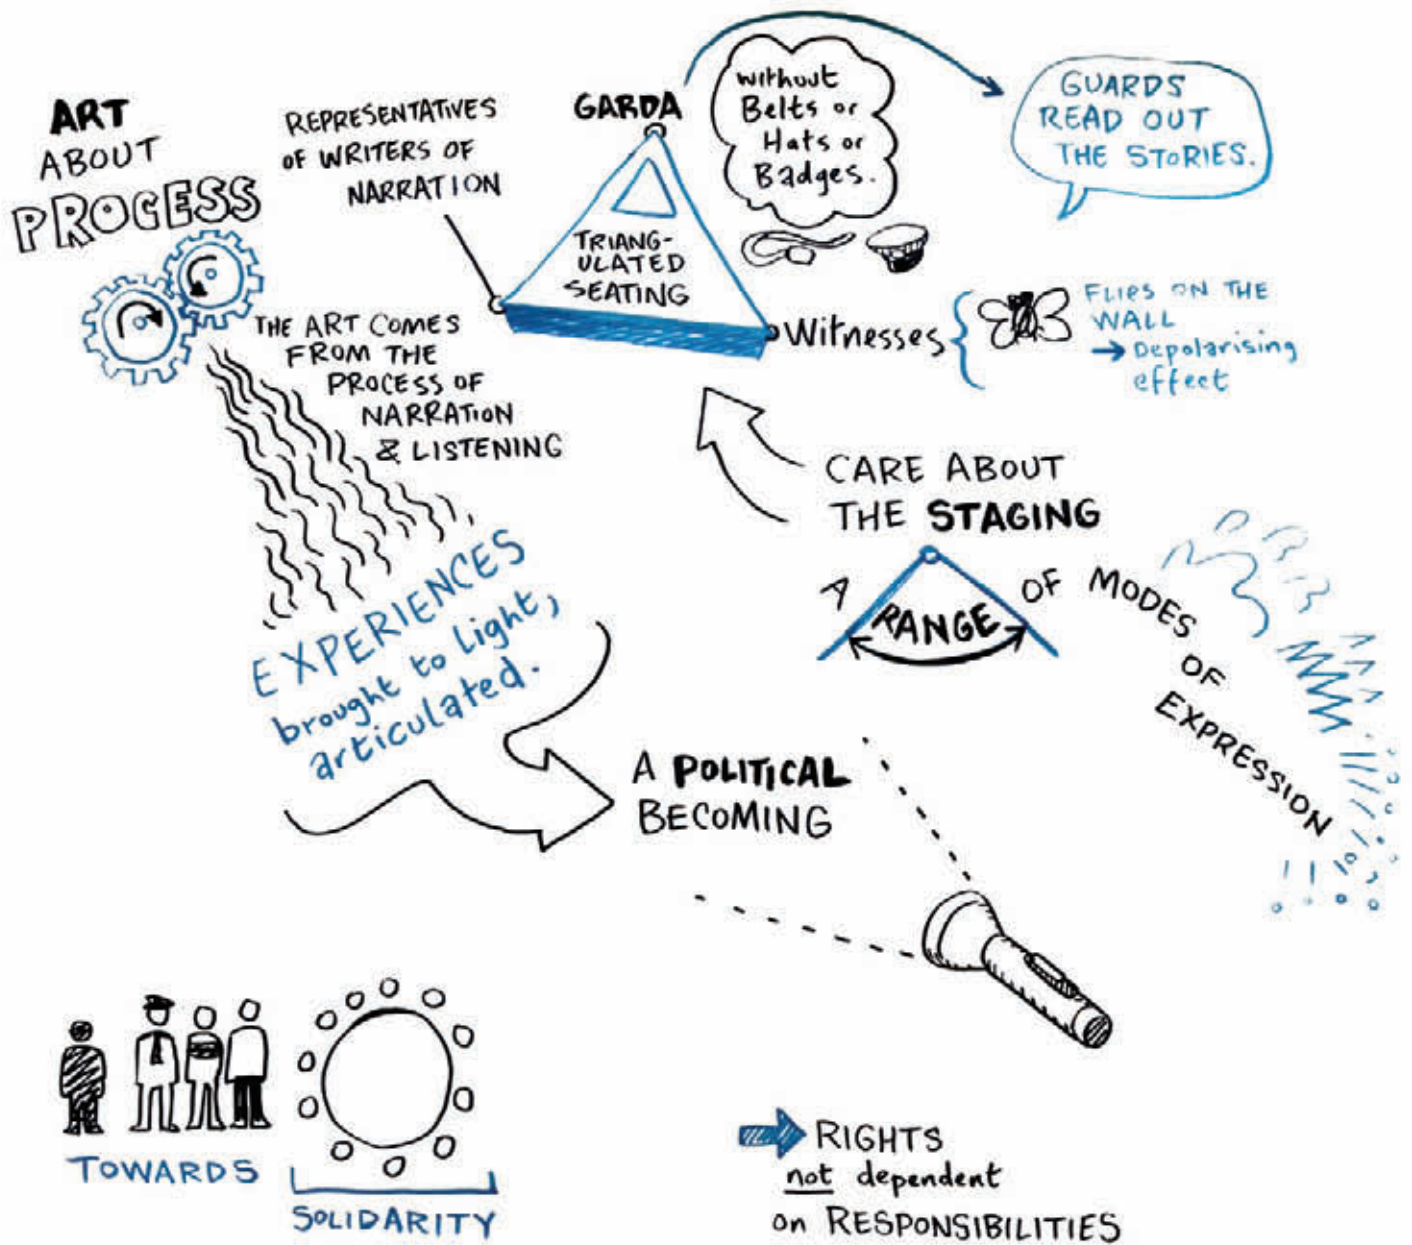 ART
ABOUT
PROCESS
REPRESENTATIVES
OF WRITERS OF
NARRATION
GARDA
without
Belts or
Hats or
Badges.
GUARDS
READ OUT
THE STORIES.
TRIANG-
ULATED
SEATING
Witnesses
FLIES ON THE
WALL
→ Depolarising
effect
THE ART COMES
FROM THE
PROCESS OF
NARRATION
& LISTENING
CARE ABOUT
THE STAGING
A RANGE OF MODES OF EXPRESSION
EXPERIENCES
brought to light,
articulated.
A POLITICAL
BECOMING
TOWARDS
SOLIDARITY
RIGHTS
not dependent
on RESPONSIBILITIES